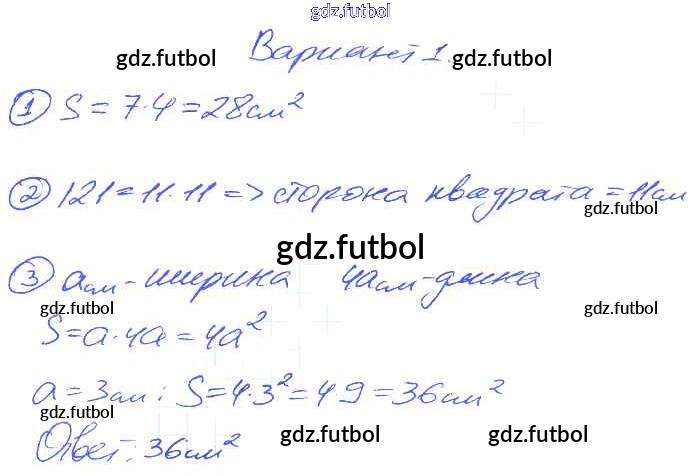 gdz.futbol
Вариант 1.
gdz.futbol gdz.futbol
1 S = 7·4 = 28 см²
2 121 = 11·11 => сторона квадрата = 11 см
gdz.futbol
gdz.futbol
3 а см - ширина 4а см - длина
gdz.futbol gdz.futbol
S = а·4а = 4а²
а = 3 см: S = 4·3² = 4·9 = 36 см²
gdz.futbol
Ответ: 36 см²
gdz.futbol gdz.futbol